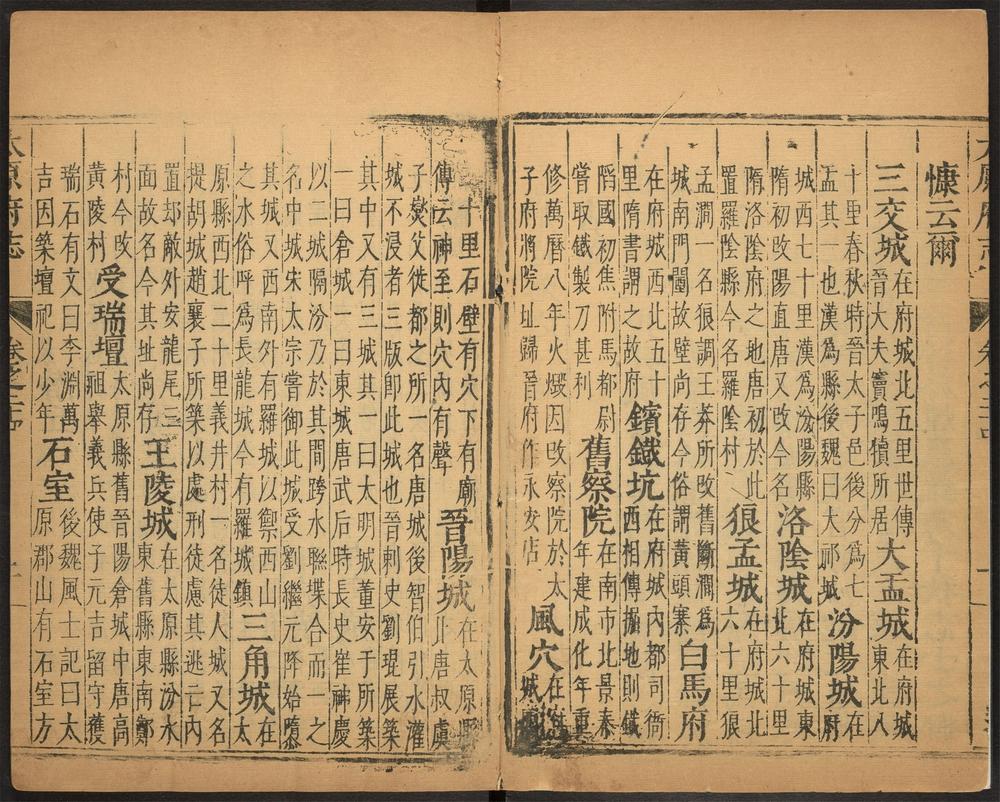 慷云爾
三交城
在府城北五里世傳
晉大夫竇鳴犢所居
大盂城
在府城
東北八
十里春秋時晉太子邑後分為七
盂其 也漢為縣後魏曰大祁城
汾陽城
在
府
城西七十里漢為汾陽縣
隋初改陽直唐又改今
洛陰城
在府城東
北六十里
隋洛陰府之地唐初於此
置羅陰縣今名羅陰村
狼孟城
在府城北
六十里狼
孟澗一名狼調王莽所改舊斷澗為
城南門闉故壁尚存今俗謂黃頭寨
白馬府
在府城西北五十
里隋書謂之故府
鑌鐵坑
在府城內都司衙
西相傳掘地則鐵
䧟國初焦附馬都尉
嘗取鐵製刀甚利
舊察院
在南市北景泰
年建成化年重
修萬曆八年火燬因改察院於太
子府將院址歸晉府作永安店
風穴
在
城
二十里石壁有穴下有廟
傳云神至則穴內有聲
晉陽城
在太原縣
北唐叔虞
子燮父徙都之所一名唐城後智伯引水灌
城不浸者三版即此城也晉刺史劉琨展築
其中又有三城其一曰大明城董安于所築
一曰倉城一曰東城唐武后時長史崔神慶
以二城隔汾乃於其間跨水聯堞合而一之
名中城宋太宗嘗御此城受劉繼元降始隳
其城又西南外有羅城以禦西山
之水俗呼為長龍城今有羅城鎮
三角城
在
太
原縣西北二十里義井村一名徒人城又名
提胡城趙襄子所築以處刑徒慮其逃亡內
置刦敵外安龍尾三
面故名今其址尚存
王陵城
在太原縣汾水
東舊縣東南鄭
村今改
黃陵村
受瑞壇
太原縣舊晉陽倉城中唐高
祖舉義兵使子元吉留守獲
瑞石有文曰李淵萬
吉因築壇祀以少年
石室
後魏風土記曰太
原郡山有石室方
太原府志
卷之二十四